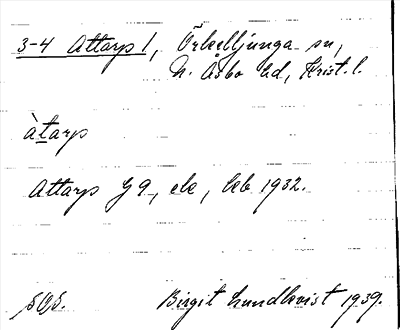 3-4 Attarp 1, Örkelljunga sn,
N. Åsbo hd, Krist. l.
àtarp
Attarp J 9, ek, leb 1932.
Birgit Lundkvist 1939.